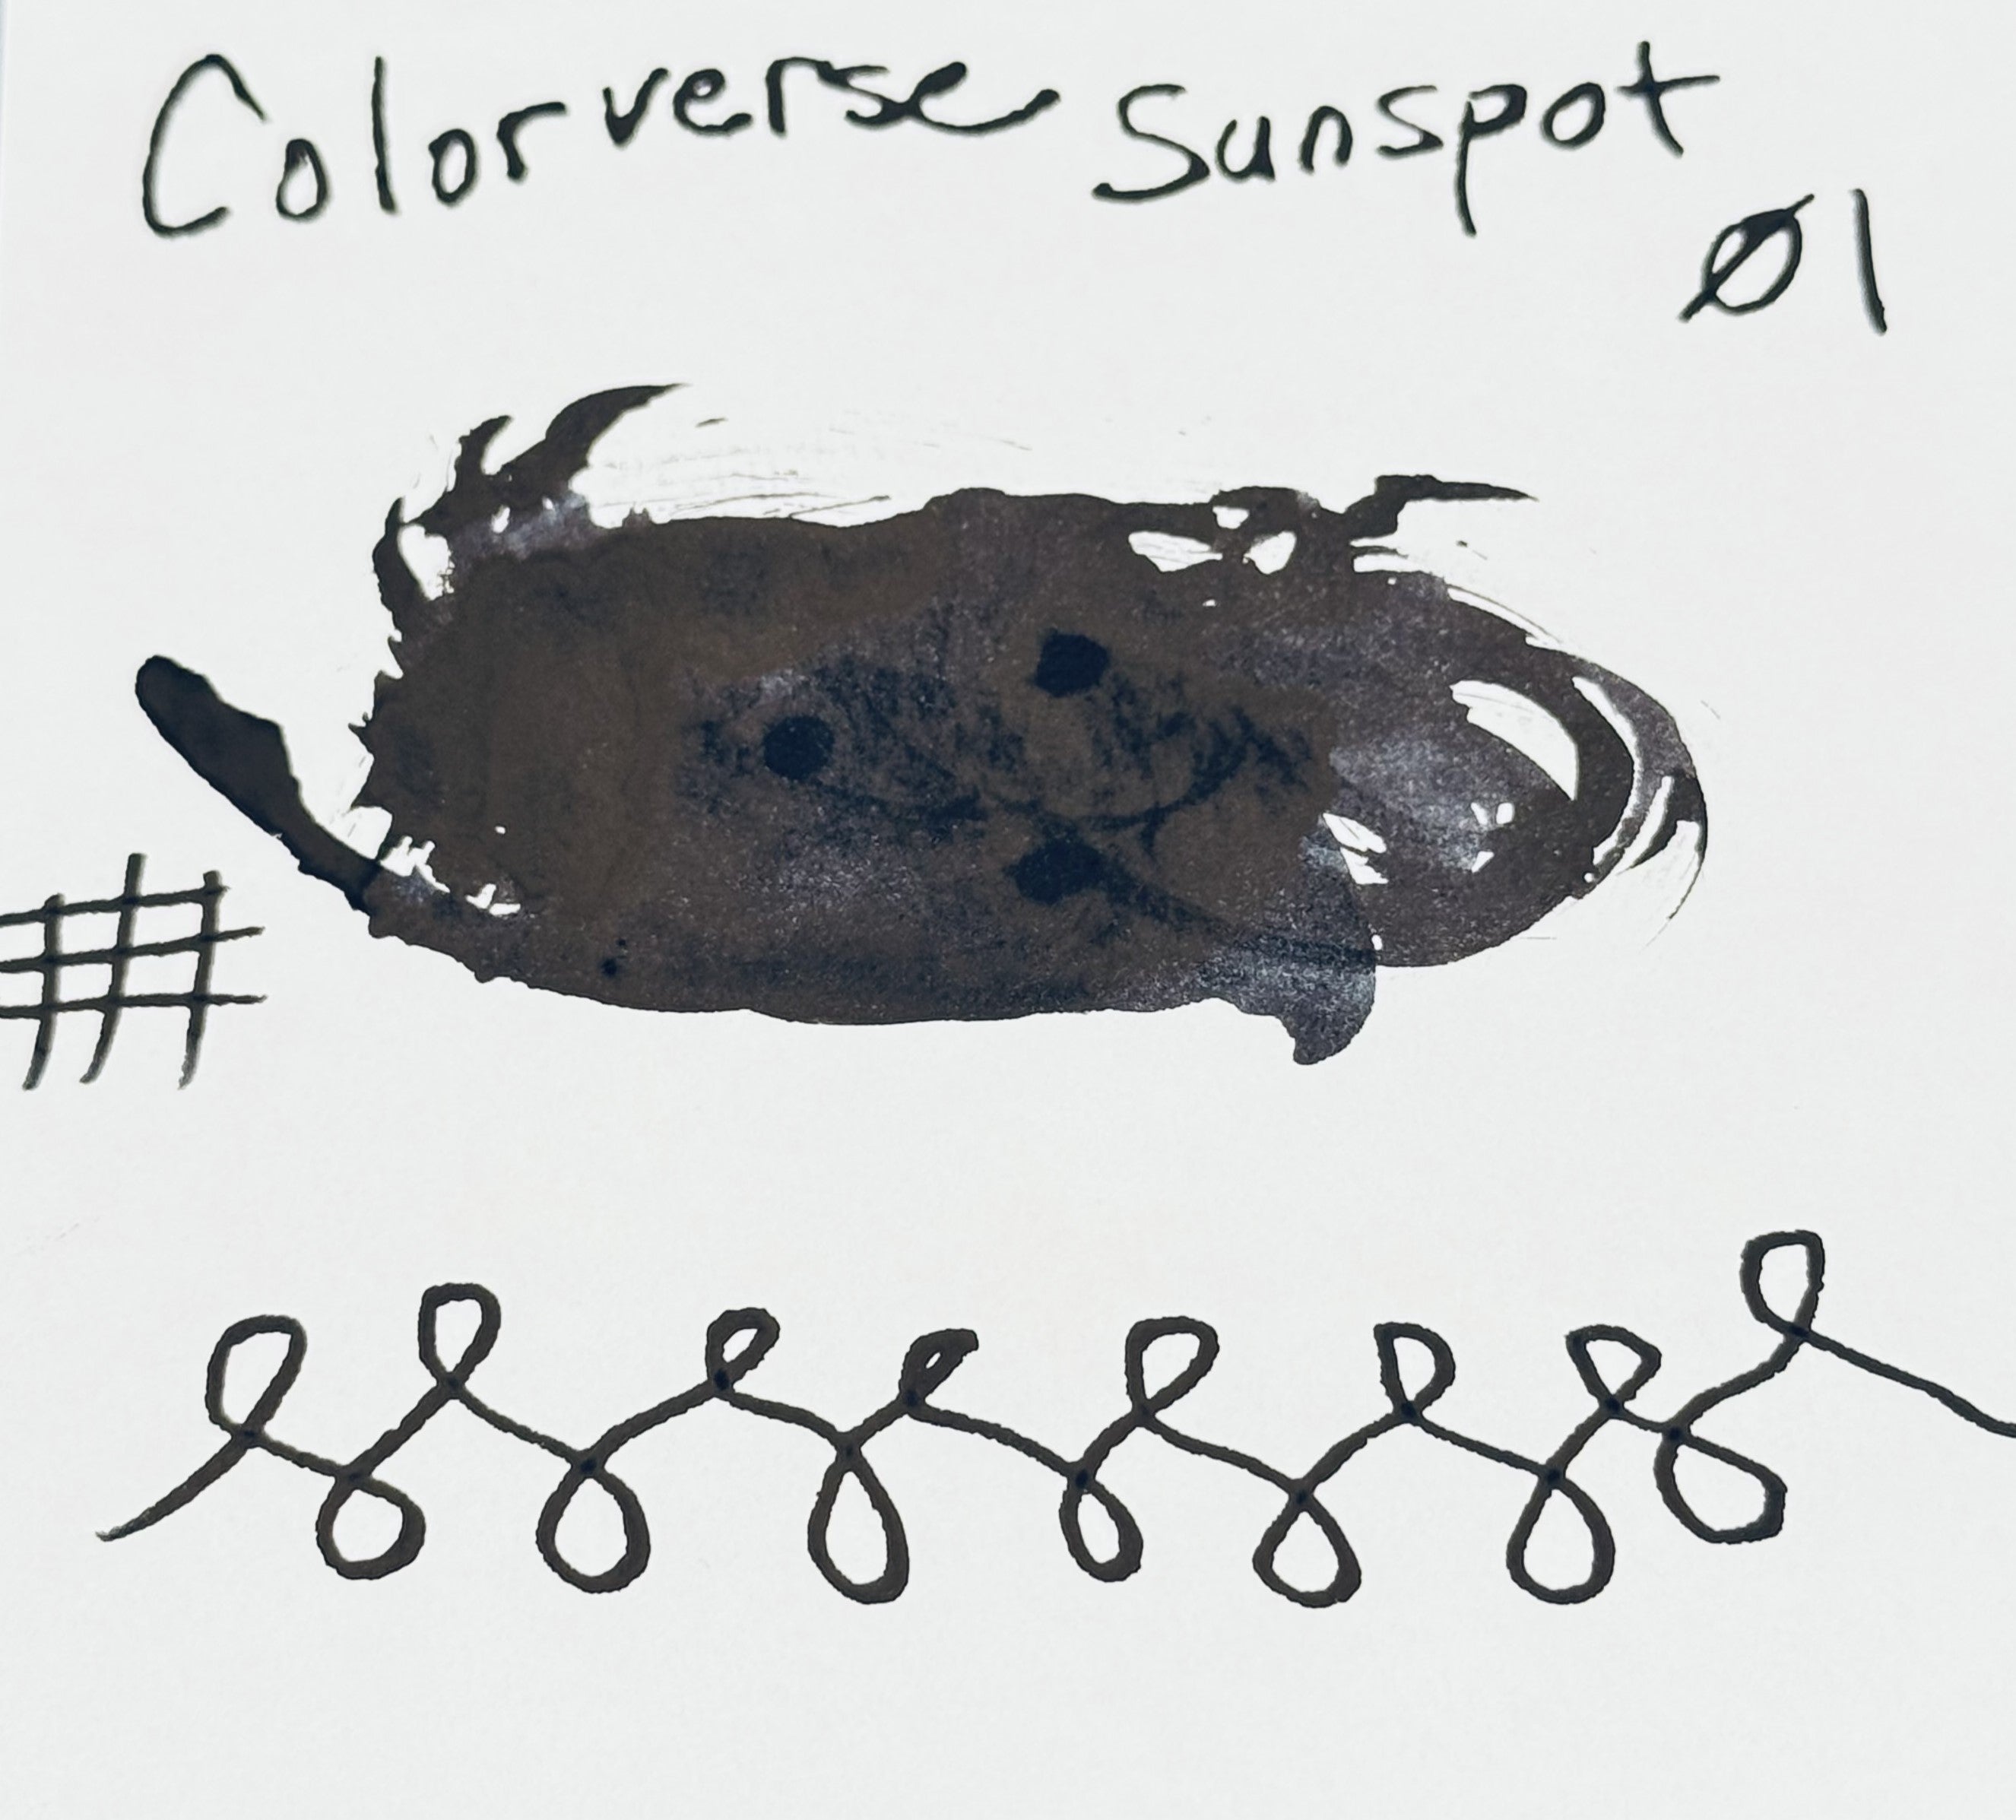 Colorverse Sunspot
Ø1